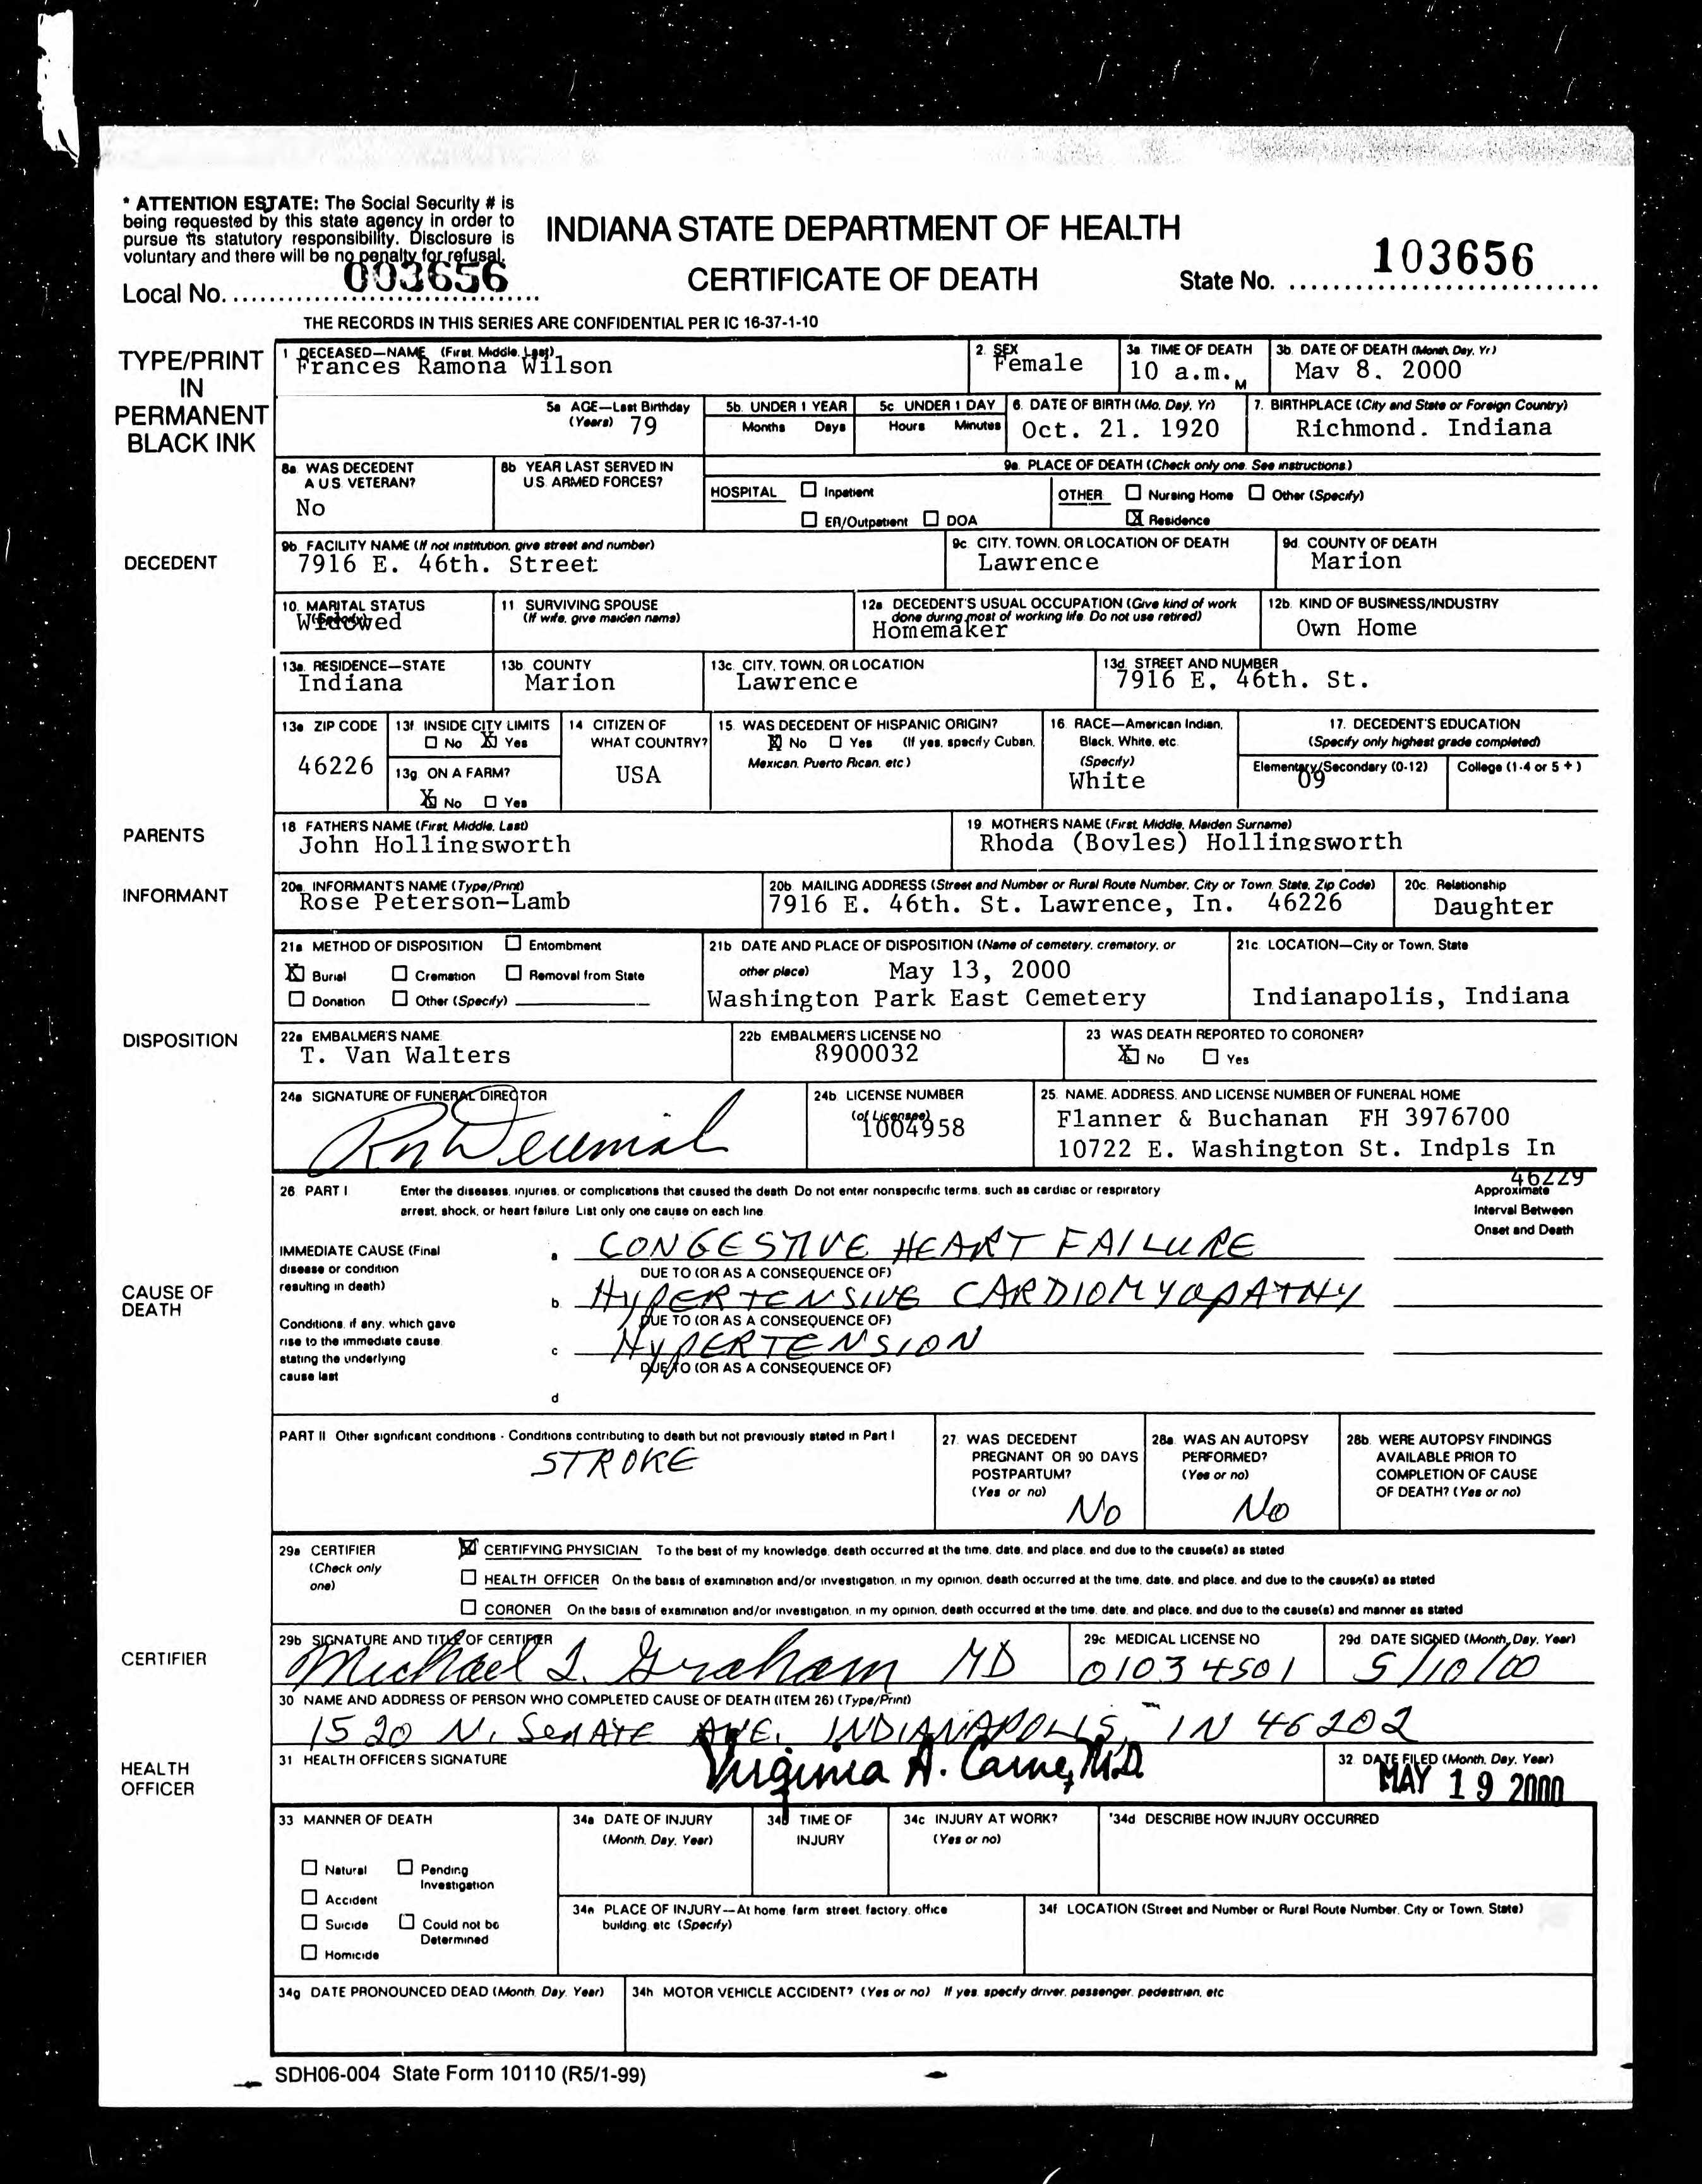 * ATTENTION ESTATE: The Social Security # is
being requested by this state agency in order to
pursue its statutory responsibility. Disclosure is
voluntary and there will be no penalty for refusal.
INDIANA STATE DEPARTMENT OF HEALTH
CERTIFICATE OF DEATH
Local No. 003656
State No. 103656
THE RECORDS IN THIS SERIES ARE CONFIDENTIAL PER IC 16-37-1-10
TYPE/PRINT
IN
PERMANENT
BLACK INK
1 DECEASED—NAME (First, Middle, Last)
Frances Ramona Wilson
2. SEX
Female
3a TIME OF DEATH
10 a.m. M
3b. DATE OF DEATH (Month, Day, Yr)
May 8, 2000
5a AGE—Last Birthday
(Years) 79
5b. UNDER 1 YEAR
Months Days
5c UNDER 1 DAY
Hours Minutes
6. DATE OF BIRTH (Mo, Day, Yr)
Oct. 21. 1920
7. BIRTHPLACE (City and State or Foreign Country)
Richmond. Indiana
8a WAS DECEDENT
A U.S. VETERAN?
No
8b YEAR LAST SERVED IN
U.S. ARMED FORCES?
9a. PLACE OF DEATH (Check only one. See instructions.)
HOSPITAL ☐ Inpatient
☐ ER/Outpatient ☐ DOA
OTHER ☐ Nursing Home ☐ Other (Specify)
☒ Residence
DECEDENT
9b FACILITY NAME (If not institution, give street and number)
7916 E. 46th. Street
9c. CITY, TOWN, OR LOCATION OF DEATH
Lawrence
9d. COUNTY OF DEATH
Marion
10. MARITAL STATUS
(Specify)
Widowed
11 SURVIVING SPOUSE
(If wife, give maiden name)
12a DECEDENT'S USUAL OCCUPATION (Give kind of work
done during most of working life. Do not use retired)
Homemaker
12b. KIND OF BUSINESS/INDUSTRY
Own Home
13a. RESIDENCE—STATE
Indiana
13b. COUNTY
Marion
13c. CITY, TOWN, OR LOCATION
Lawrence
13d. STREET AND NUMBER
7916 E. 46th. St.
13e ZIP CODE
46226
13f INSIDE CITY LIMITS
☐ No ☒ Yes
13g ON A FARM?
☒ No ☐ Yes
14 CITIZEN OF
WHAT COUNTRY?
USA
15. WAS DECEDENT OF HISPANIC ORIGIN?
☒ No ☐ Yes (If yes, specify Cuban,
Mexican, Puerto Rican, etc.)
16. RACE—American Indian,
Black, White, etc.
(Specify)
White
17. DECEDENT'S EDUCATION
(Specify only highest grade completed)
Elementary/Secondary (0-12)
09
College (1-4 or 5 + )
PARENTS
18 FATHER'S NAME (First, Middle, Last)
John Hollingsworth
19. MOTHER'S NAME (First, Middle, Maiden Surname)
Rhoda (Boyles) Hollingsworth
INFORMANT
20a. INFORMANT'S NAME (Type/Print)
Rose Peterson-Lamb
20b. MAILING ADDRESS (Street and Number or Rural Route Number, City or Town, State, Zip Code)
7916 E. 46th. St. Lawrence, In. 46226
20c. Relationship
Daughter
21a METHOD OF DISPOSITION ☐ Entombment
☒ Burial ☐ Cremation ☐ Removal from State
☐ Donation ☐ Other (Specify)
21b DATE AND PLACE OF DISPOSITION (Name of cemetery, crematory, or
other place) May 13, 2000
Washington Park East Cemetery
21c. LOCATION—City or Town, State
Indianapolis, Indiana
DISPOSITION
22a EMBALMER'S NAME
T. Van Walters
22b EMBALMER'S LICENSE NO
8900032
23 WAS DEATH REPORTED TO CORONER?
☒ No ☐ Yes
24a SIGNATURE OF FUNERAL DIRECTOR
24b LICENSE NUMBER
(of Licensee)
1004958
25. NAME, ADDRESS, AND LICENSE NUMBER OF FUNERAL HOME
Flanner & Buchanan FH 3976700
10722 E. Washington St. Indpls In
46229
26 PART I Enter the diseases, injuries, or complications that caused the death. Do not enter nonspecific terms, such as cardiac or respiratory
arrest, shock, or heart failure. List only one cause on each line.
Approximate
Interval Between
Onset and Death
CAUSE OF
DEATH
IMMEDIATE CAUSE (Final
disease or condition
resulting in death)
a CONGESTIVE HEART FAILURE
DUE TO (OR AS A CONSEQUENCE OF)
b. HYPERTENSIVE CARDIOMYOPATHY
DUE TO (OR AS A CONSEQUENCE OF)
Conditions, if any, which gave
rise to the immediate cause,
stating the underlying
cause last
c HYPERTENSION
DUE TO (OR AS A CONSEQUENCE OF)
d
PART II Other significant conditions - Conditions contributing to death but not previously stated in Part I
STROKE
27. WAS DECEDENT
PREGNANT OR 90 DAYS
POSTPARTUM?
(Yes or no)
No
28a. WAS AN AUTOPSY
PERFORMED?
(Yes or no)
No
28b. WERE AUTOPSY FINDINGS
AVAILABLE PRIOR TO
COMPLETION OF CAUSE
OF DEATH? (Yes or no)
29a CERTIFIER
(Check only
one)
☒ CERTIFYING PHYSICIAN To the best of my knowledge, death occurred at the time, date, and place, and due to the cause(s) as stated
☐ HEALTH OFFICER On the basis of examination and/or investigation, in my opinion, death occurred at the time, date, and place, and due to the cause(s) as stated
☐ CORONER On the basis of examination and/or investigation, in my opinion, death occurred at the time, date, and place, and due to the cause(s) and manner as stated
CERTIFIER
29b SIGNATURE AND TITLE OF CERTIFIER
Michael L. Graham MD
29c MEDICAL LICENSE NO
01034501
29d. DATE SIGNED (Month, Day, Year)
5/10/00
30 NAME AND ADDRESS OF PERSON WHO COMPLETED CAUSE OF DEATH (ITEM 26) (Type/Print)
1520 N. SENATE AVE. INDIANAPOLIS, IN 46202
HEALTH
OFFICER
31 HEALTH OFFICER'S SIGNATURE
Virginia A. Caine, M.D.
32 DATE FILED (Month, Day, Year)
MAY 19 2000
33 MANNER OF DEATH
☐ Natural ☐ Pending
Investigation
☐ Accident
☐ Suicide ☐ Could not be
Determined
☐ Homicide
34a DATE OF INJURY
(Month, Day, Year)
34b TIME OF
INJURY
34c INJURY AT WORK?
(Yes or no)
34d DESCRIBE HOW INJURY OCCURRED
34e PLACE OF INJURY—At home, farm, street, factory, office
building, etc. (Specify)
34f LOCATION (Street and Number or Rural Route Number, City or Town, State)
34g DATE PRONOUNCED DEAD (Month, Day, Year)
34h MOTOR VEHICLE ACCIDENT? (Yes or no) If yes, specify driver, passenger, pedestrian, etc
SDH06-004 State Form 10110 (R5/1-99)